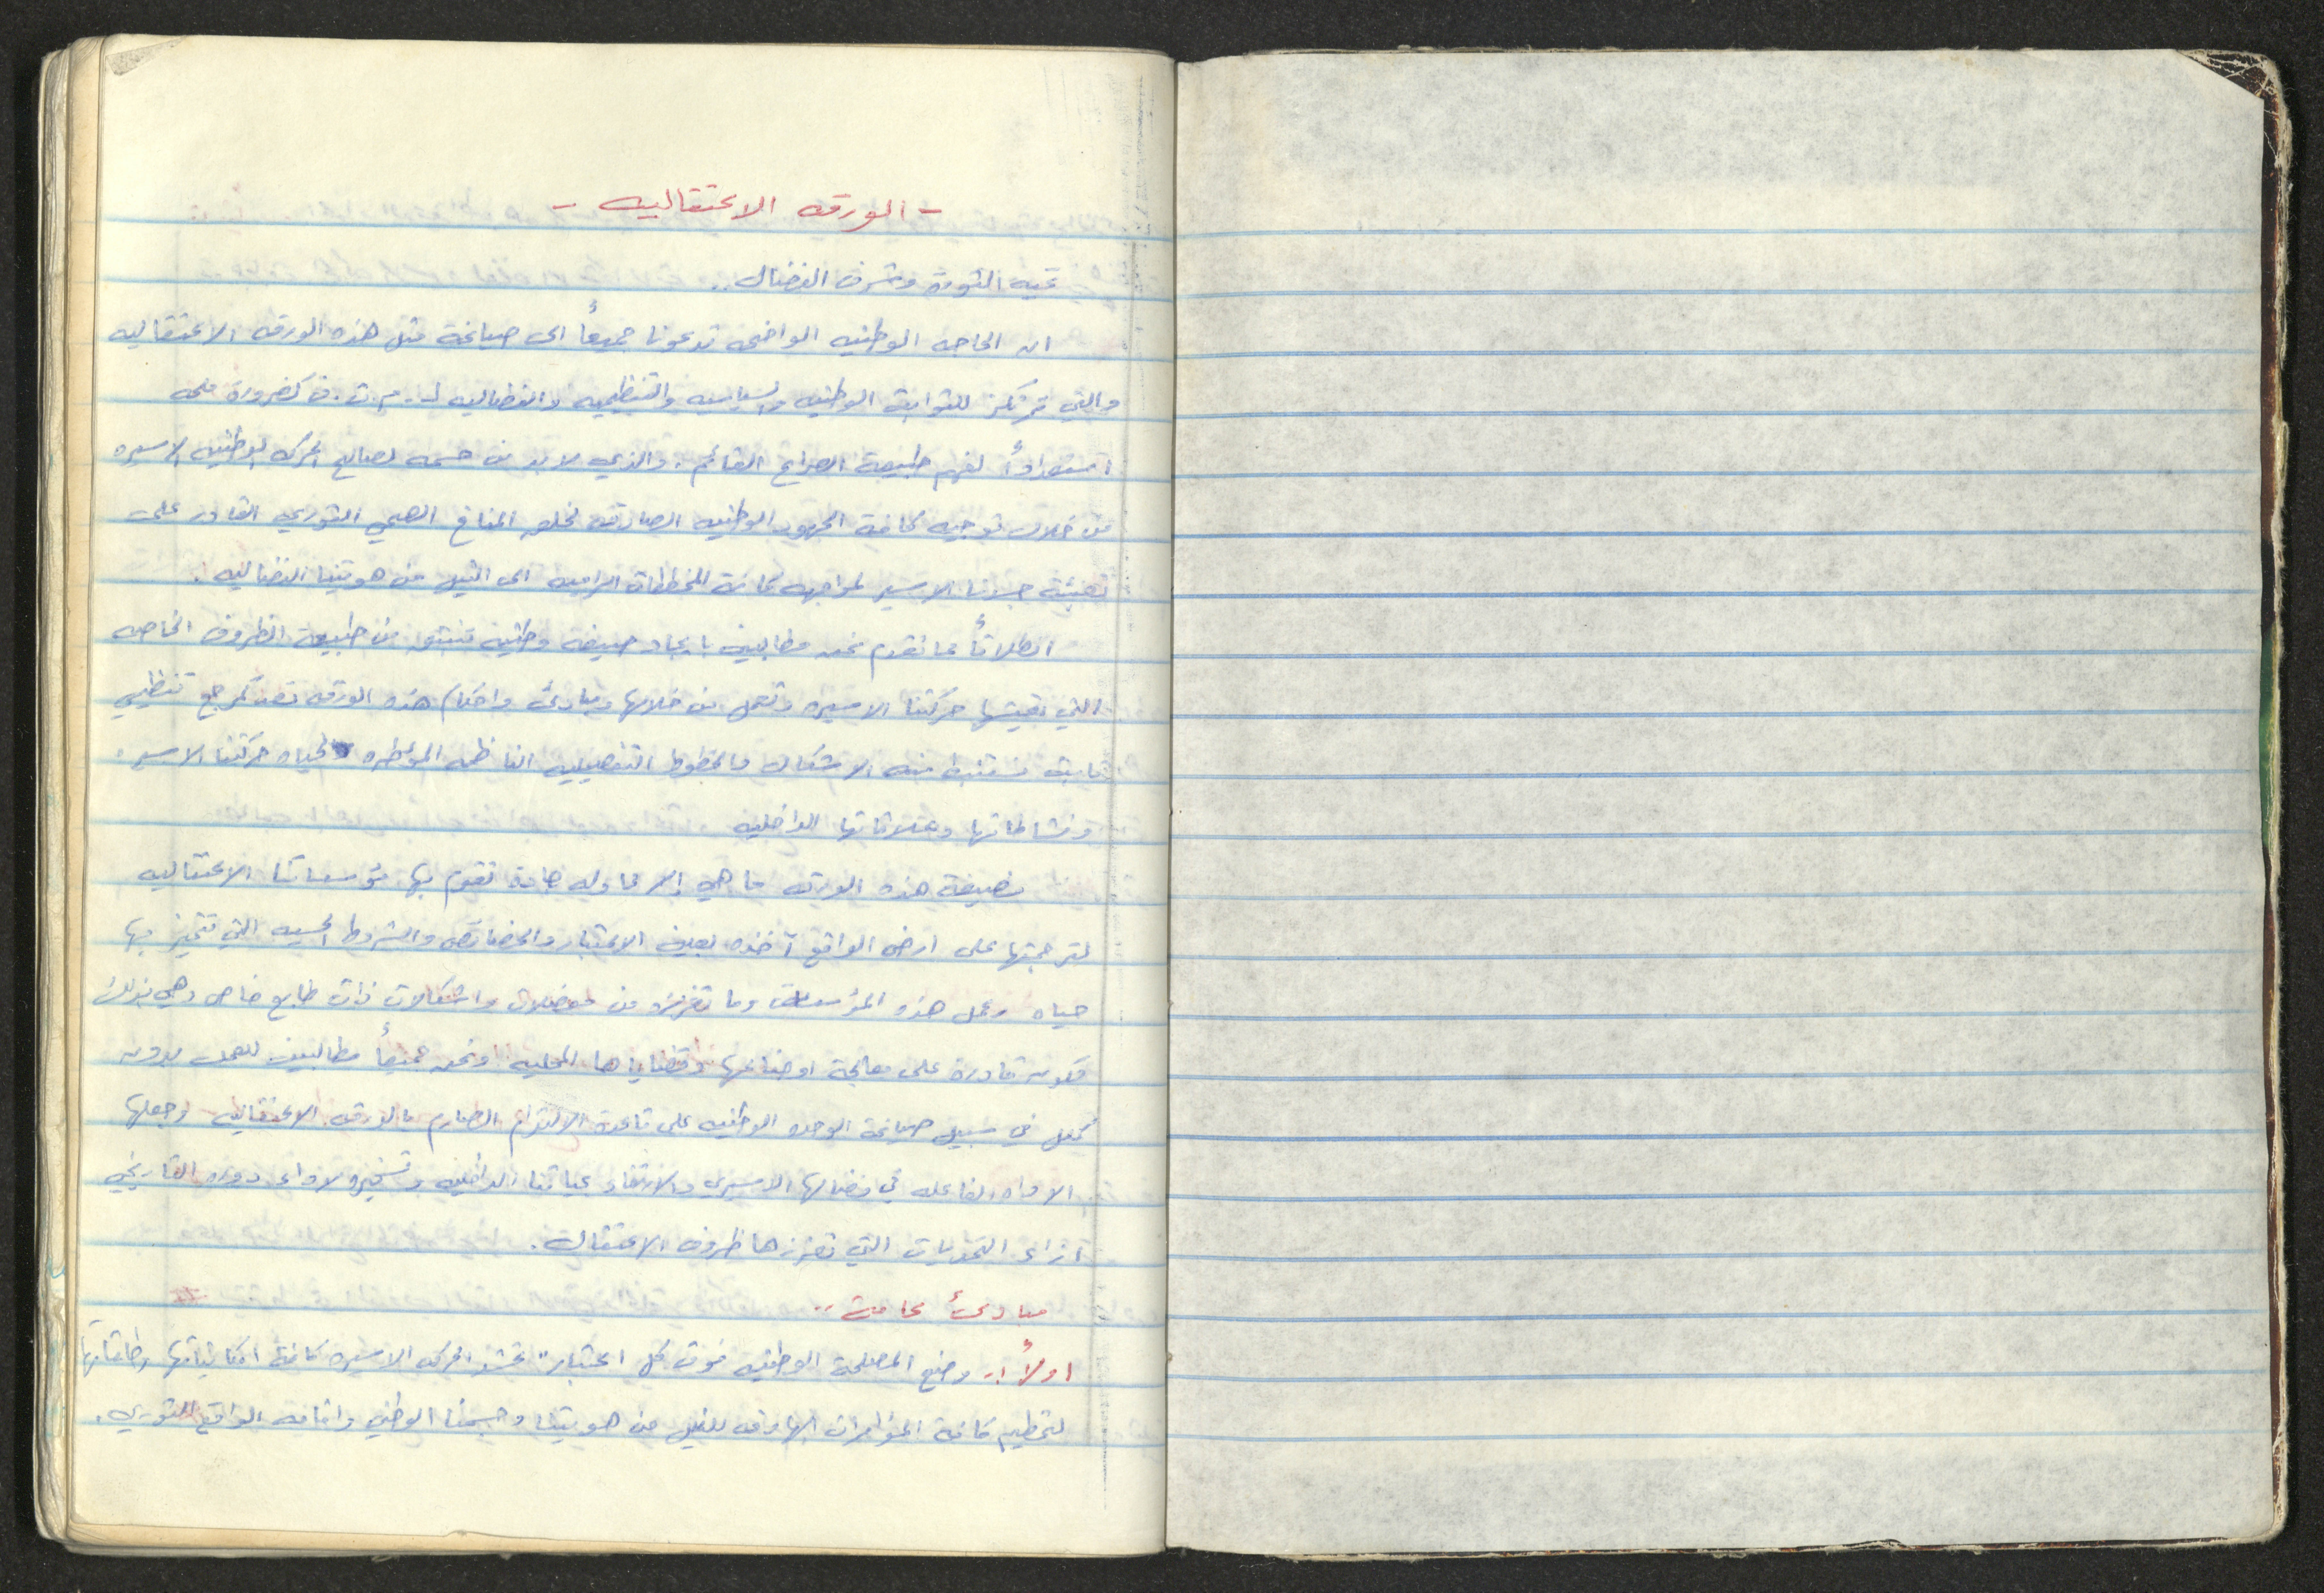 - الورقه الاعتقاليه -
تحيه الثورة وشرف النضال..
ان الحاجه الوطنيه الواضحه تدعونا جميعاً الى صياغة مثل هذه الورقه الاعتقاليه
والتي ترتكز للثوابت الوطنيه والسياسيه والتنظيميه والنضاليه لـ م.ت.ف كضرورة ملحه
لفهم طبيعة الصراع القائم، والذي لا بد من حسمه لصالح الحركه الوطنيه الاسيره
من خلال توجيه كافة الجهود الوطنيه الصادقه لخلق المناخ الصحي الثوري القادر على
تعبئة جسدنا الاسير لمواجهه كافة المخططات الراميه الى النيل من هويتنا النضاليه.
انطلاقاً مما تقدم نحن مطالبين بايجاد صيغة وطنيه تنبثق من طبيعة الظروف الخاصه
التي تعيشها حركتنا الاسيره وتعمل من خلالها ومبادئ واحكام هذه الورقه تعد كمرجع تنظيمي
ثابت تستنبط منه الاشكال والخطوط التفصيليه الناظمه المؤطره لحياه حركتنا الاسيره
ونشاطاتها وعلاقاتها الداخليه
فصيغة هذه الورقه ما هي إلا محاوله جادة تقوم بها مؤسساتنا الاعتقاليه
لترجمتها على ارض الواقع آخذه بعين الاعتبار والخصائص والشروط الحسيه التي تتميز بها
حياه وعمل هذه المؤسسات وما تفرزه من معضلات واشكالات ذات طابع خاص وهي بذلك
تكون قادرة على معالجة اوضاعها وقضاياها المحليه ونحن جميعاً مطالبين للعمل بدون
كلل في سبيل صياغة الوحده الوطنيه على قاعدة الالتزام الصارم بالورقه الاعتقاليه وجعلها
الاداه الفاعله في نضالها الاسيري والارتقاء بحياتنا الداخليه لاداء دوره التاريخي
ازاء التحديات التي تفرزها ظروف الاعتقال.
مبادئ عامة ..
اولاً :- وضع المصلحة الوطنيه فوق كل اعتبار" تحشد الحركه الاسيره كافة امكانياتها وطاقاتها
لتحطيم كافة المؤامرات الهادفه للنيل من هويتنا وجسمنا الوطني واقامه الواقع الثوري.